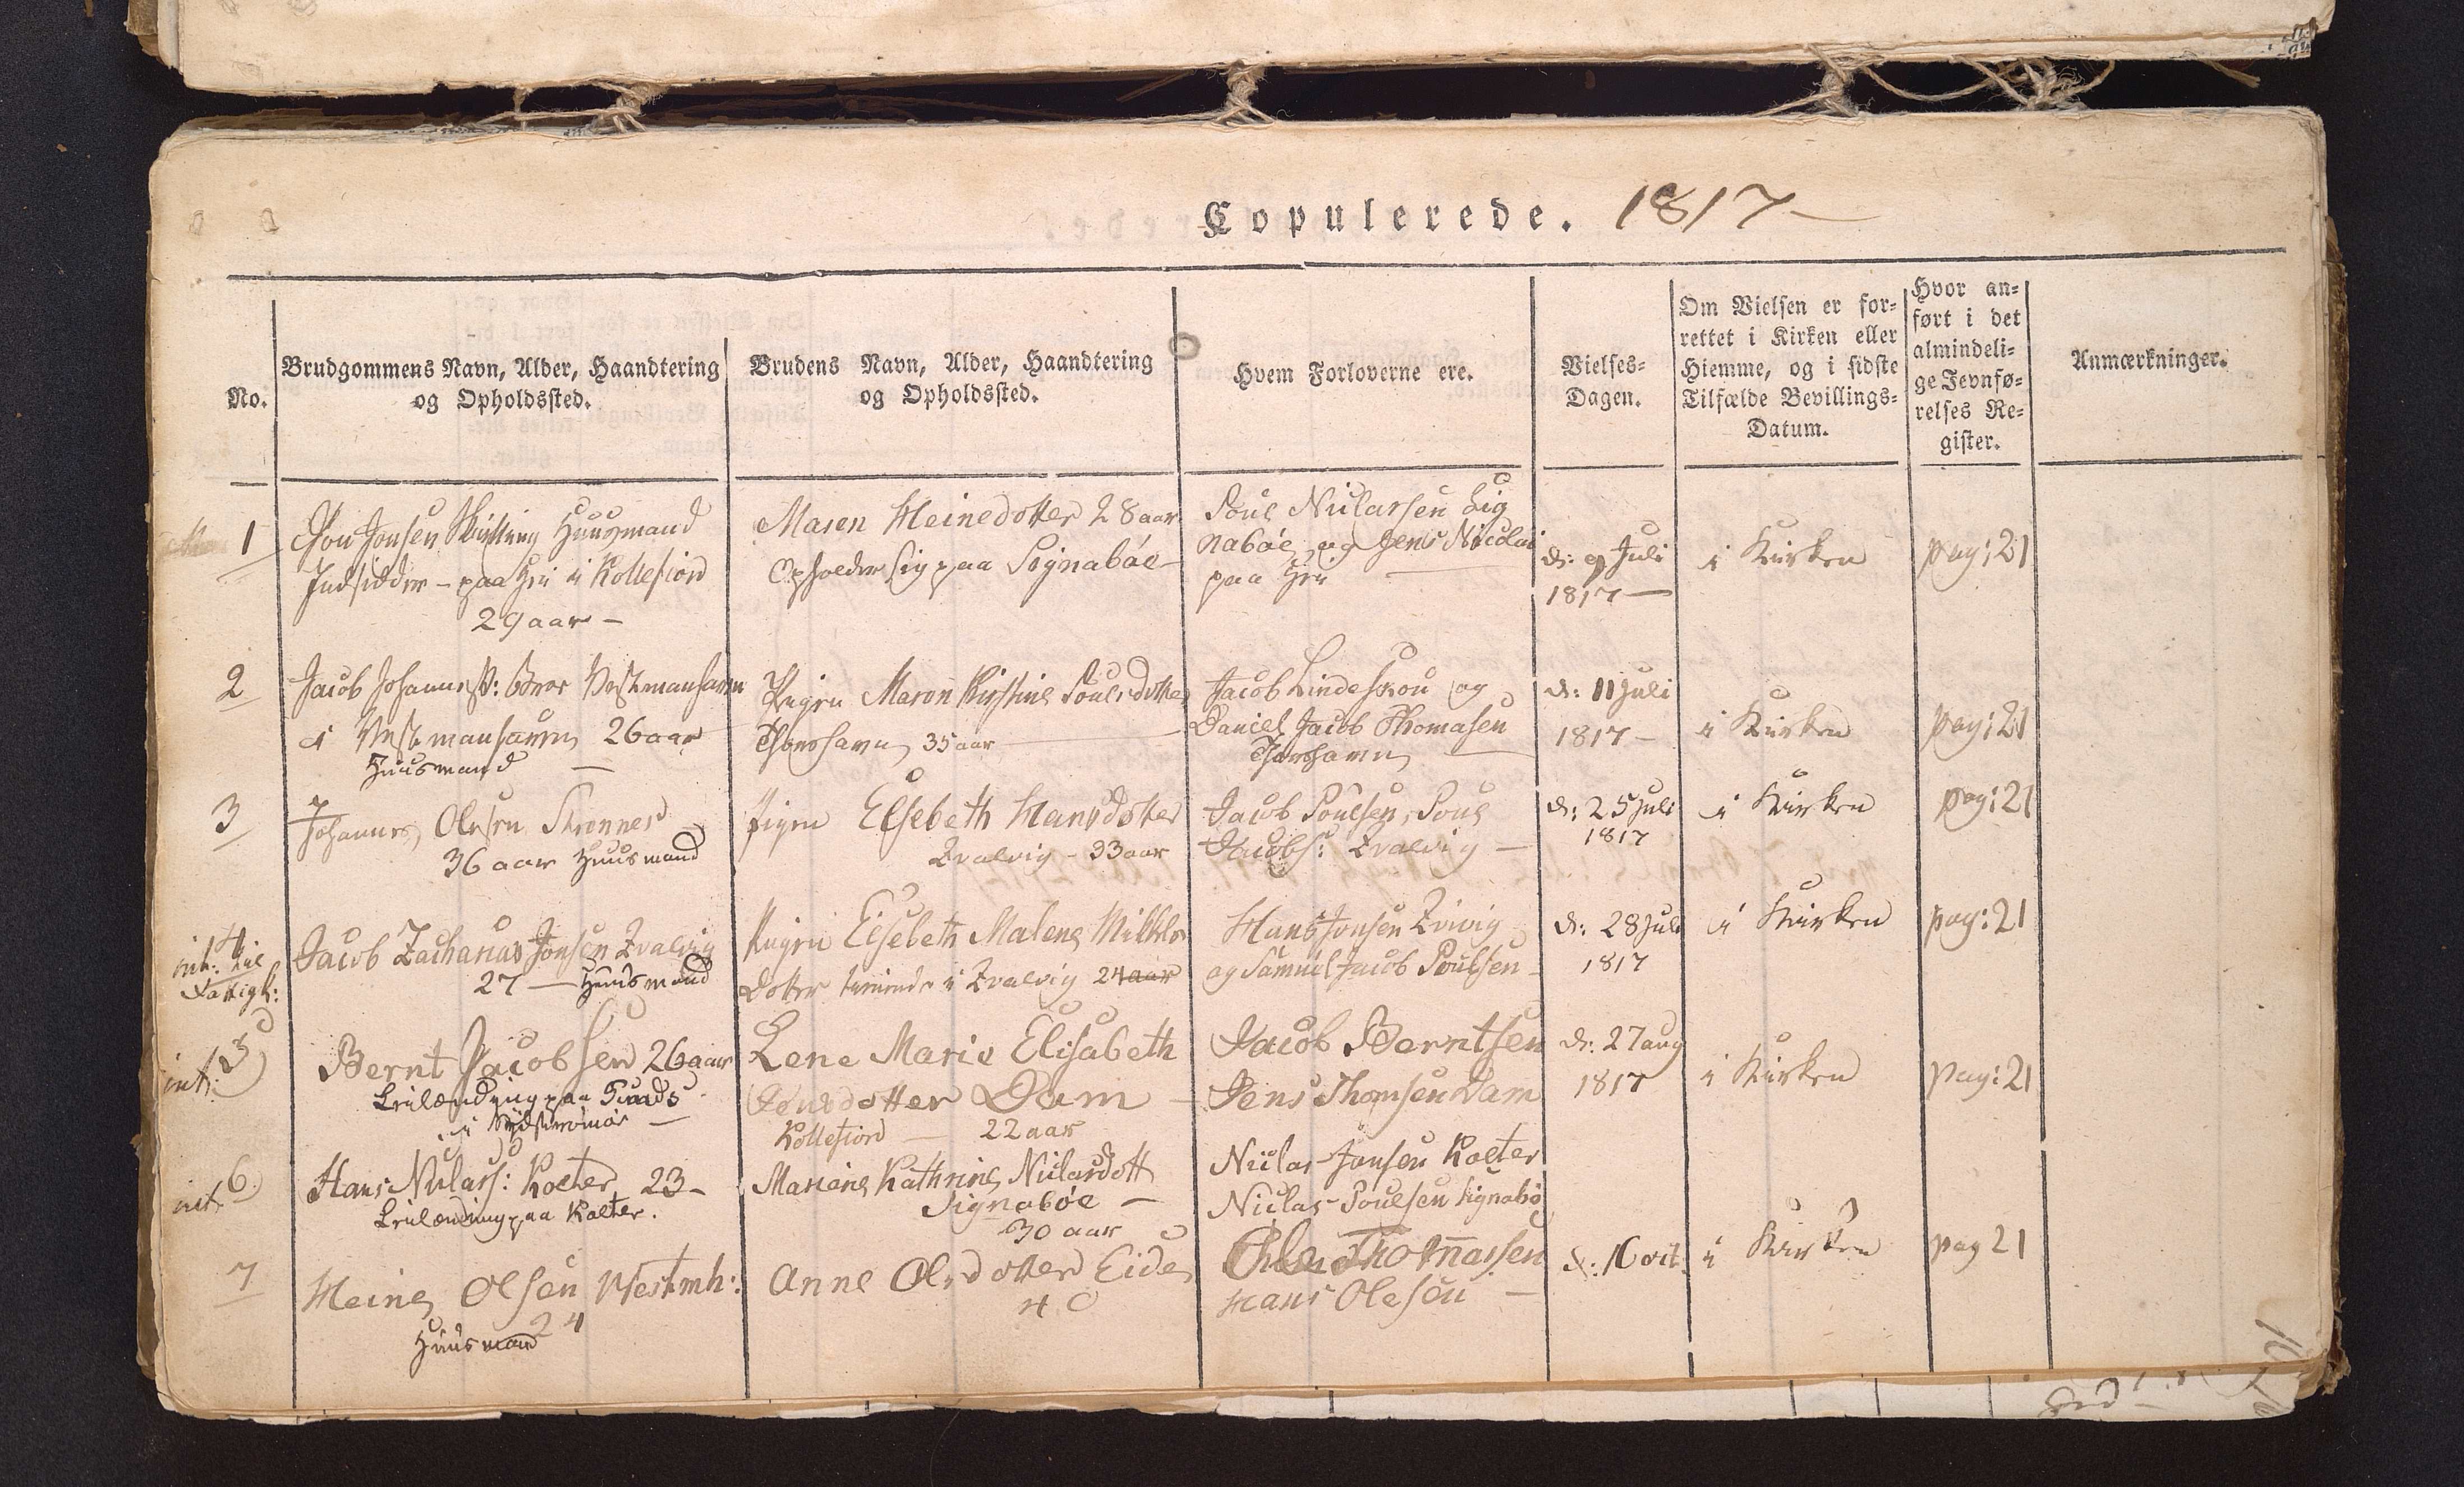 Copulerede. 1817
No.
Brudgommens Navn, Alder, Haandtering
og Opholdssted.
Brudens Navn, Alder, Haandtering
og Opholdssted.
Hvem Forloverne ere.
Vielses-
Dagen.
Om Vielsen er for-
rettet i Kirken eller
Hiemme, og i sidste
Tilfælde Bevillings-
Datum.
Hvor an-
ført i det
almindeli-
ge Jevnfø-
relses Re-
gister.
Anmærkninger.
1
Jon Jonsen Huusmand
Indsidder - paa i Kollefiord
29 aar -
Maren Heinedotter 28 aar
Opholder sig paa Signabøe -
Poul Niclassen Sig
nabøe og Jens Nicolai
paa
d: 9 Juli
1817 -
i Kirken
pag: 21
2
Jacob Johanness: Vestmanhavn
i Vestmanhavn 26 aar
Huusmand -
Pigen Maren Kirstine Poulsdotter
Thorshavn 35 aar -
Jacob Lindeskou og
Daniel Jacob Thomasen
Thorshavn
d: 11 Juli
1817 -
i Kirken
pag: 21
3
Johannes Olesen
36 aar Huusmand
Pigen Elsebeth Hansdotter
Qvalvig - 33 aar
Jacob Poulsen, Poul
Jacobs: Qvalvig -
d: 25 Juli
1817
i Kirken
pag: 21
4
int: til
Fattigk:
Jacob Zacharias Jonsen Qvalvig
27 - Huusmand
Pigen Elsebeth Malene
Dotter tienende i Qvalvig 24 aar
Hans Jonsen Qvivig
og Samuel Jacob Poulsen -
d: 28 Juli
1817
i Kirken
pag: 21
5
int:
Bernt Jacobsen 26 aar
Leilænding paa Sunds
i Sydstrømøe -
Lene Marie Elisabeth
Jensdotter Dam -
Kollefiord - 22 aar
Jacob Berntsen
Jens Thomsen Dam
d: 27 aug
1817
i Kirken
pag: 21
6
int:
Hans Niclass: Kolter 23 -
Leilænding paa Kolter.
Mariene Kathrine Niclasdott
Signabøe -
30 aar
Niclas Jonsen Kolter
Niclas Poulsen Signabø
7
Heine Olsen Westmh:
24
Huusmand
Anne Olesdotter Eide
40
Ole Thomassen
Hans Olesen -
d: 16 oct.
i Kirken
pag 21